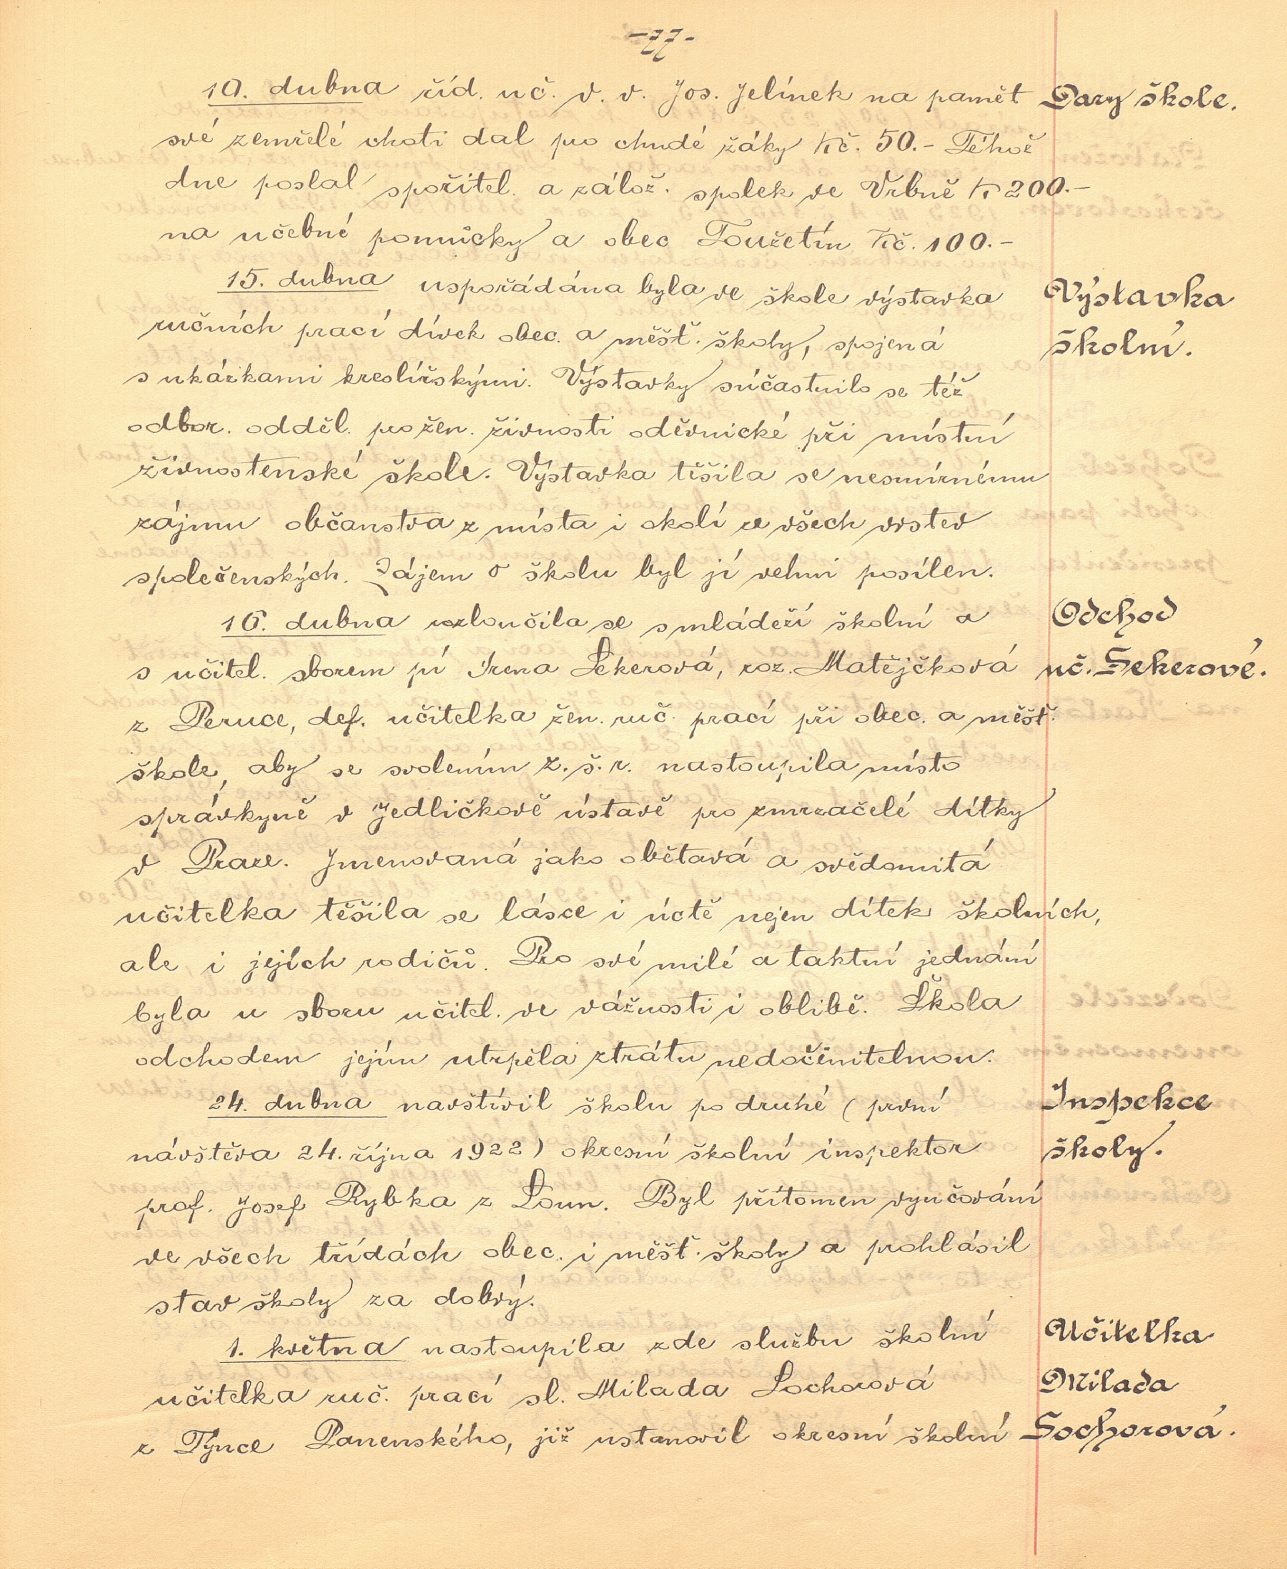 -77-
10. dubna říd. uč. v. v. Jos. Jelínek na pamět Dary škole.
své zemřelé choti dal pro chudé žáky Kč. 50.- Téhož
dne poslal spořitel. a zálož. spolek ve Vrbně K 200.-
na učebné pomůcky a obec Toužetín Kč. 100.-
15. dubna uspořádána byla ve škole výstavka Výstavka
ručních prací dívek obec. a měšť. školy, spojená školní.
s ukázkami kreslířskými. Výstavky súčastnilo se též
odbor. odděl. pro žen. živnosti oděvnické při místní
živnostenské škole. Výstavka těšila se nesmírnému
zájmu občanstva z místa i okolí ze všech vrstev
společenských. Zájem o školu byl jí velmi posílen.
16. dubna rozloučila se s mládeží školní a Odchod
s učitel. sborem pí Irena Šekerová, roz. Matějčková uč. Šekerové.
z Peruce, def. učitelka žen. ruč. prací při obec. a měšť.
škole, aby se svolením z. š. r. nastoupila místo
správkyně v Jedličkově ústavě pro zmrzačelé dítky
v Praze. Jmenovaná jako obětavá a svědomitá
učitelka těšila se lásce i úctě nejen dítek školních,
ale i jejích rodičů. Pro své milé a taktní jednání
byla u sboru učitel. ve vážnosti i oblibě. Škola
odchodem jejím utrpěla ztrátu nedocenitelnou.
24. dubna navštívil školu po druhé (první Inspekce
návštěva 24. října 1922) okresní školní inspektor školy.
prof. Josef Rybka z Loun. Byl přítomen vyučování
ve všech třídách obec. i měšť. školy a prohlásil
stav školy za dobrý.
1. května nastoupila zde službu školní Učitelka
učitelka ruč. prací sl. Milada Sochorová Milada
z Týnce Panenského, již ustanovil okresní školní Sochorová.